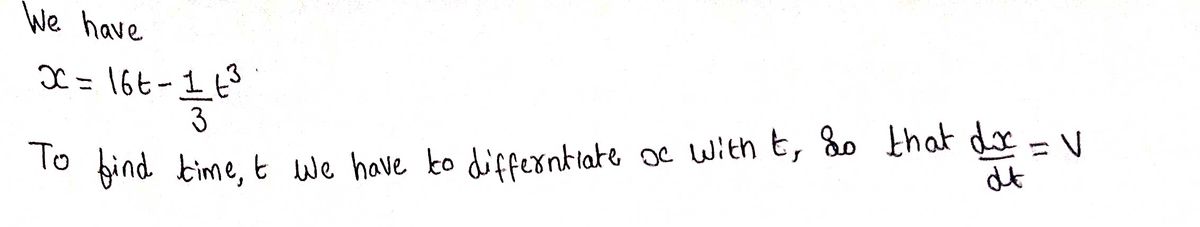 We have
x = 16t - 1/3 t³
To find time, t we have to differntiate x with t, so that dx/dt = V